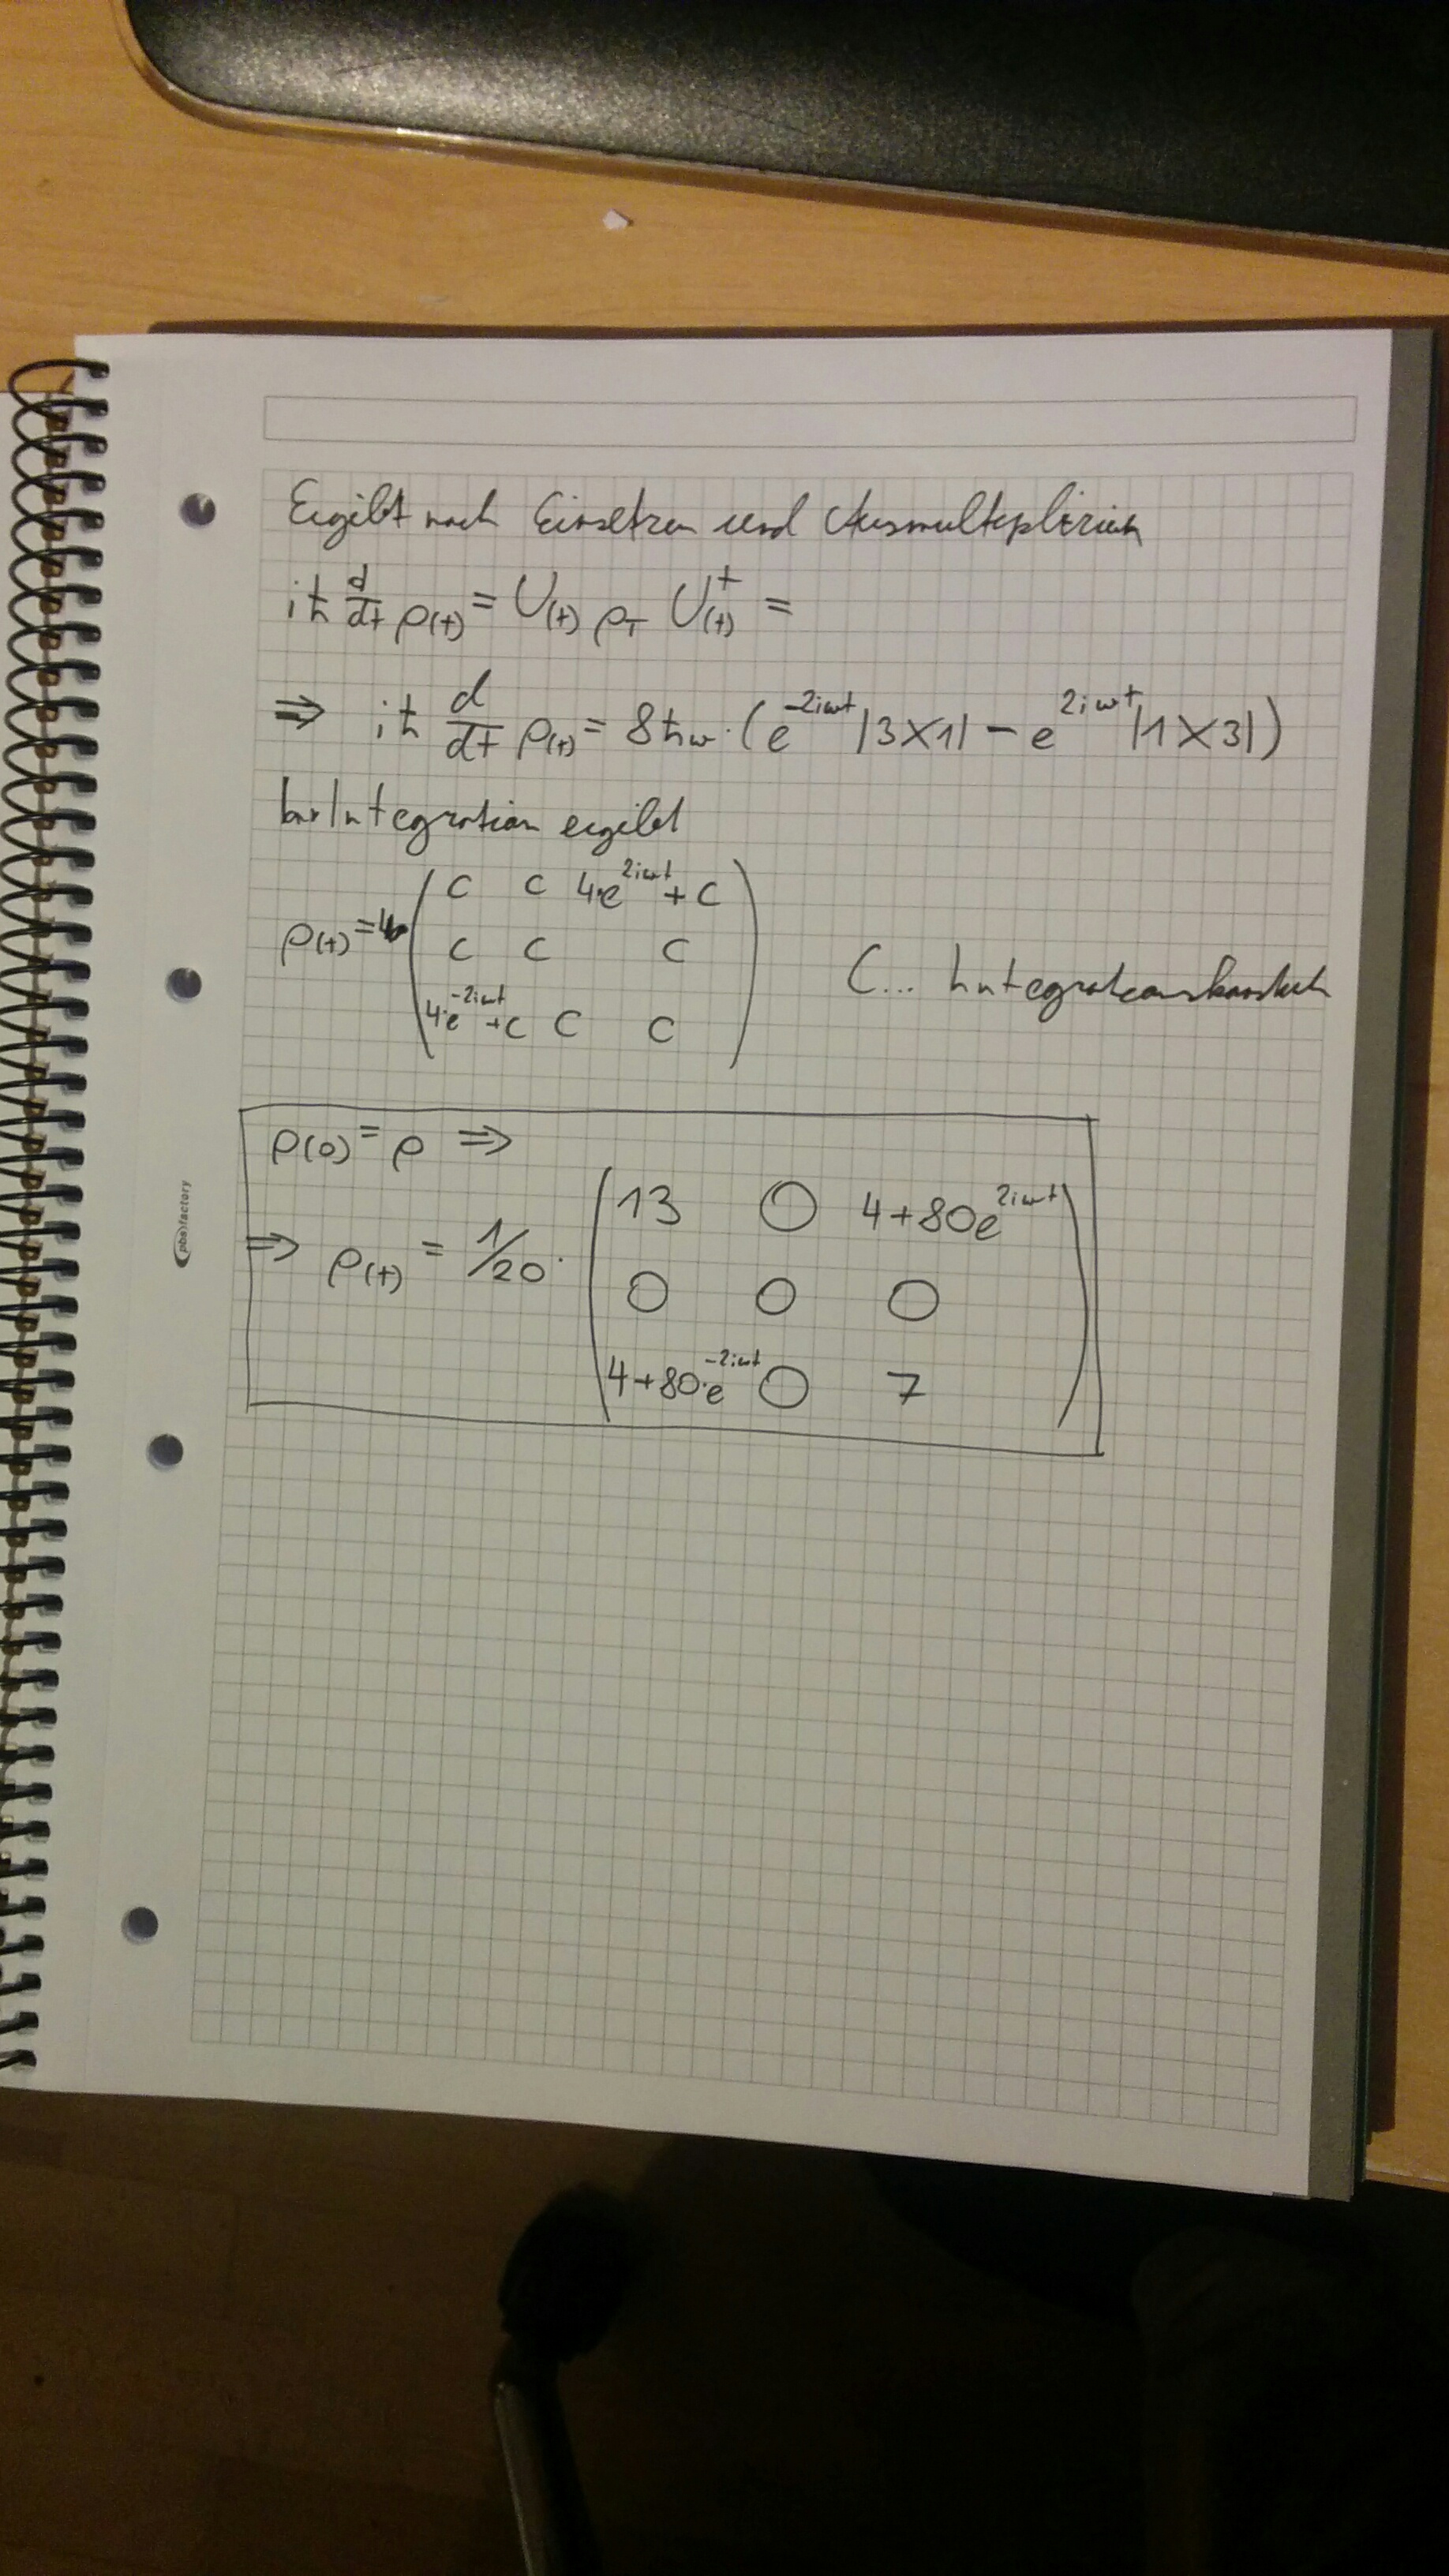 Ergibt nach Einsetzen und Ausmultiplizieren
iħ d/dt ρ(t) = U(t) ρT U(t)† =
⇒ iħ d/dt ρ(t) = 8ħω·(e^{-2iωt} |3X1| − e^{2iωt} |1X3|)
Integration ergibt
ρ(t) = ( C C 4·e^{2iωt} + C
C C C
4·e^{-2iωt} + C C C )
C... Integrationskonstante
ρ(0) = ρ ⇒
⇒ ρ(t) = 1/20 · ( 13 0 4+80e^{2iωt}
0 0 0
4+80·e^{-2iωt} 0 7 )
pbs factory